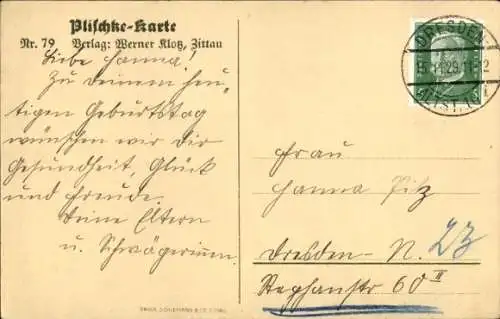 Plischke-Karte
Nr. 79 Verlag: Werner Klotz, Zittau
Liebe Hanna!
Zu Deinem heu-
tigen Geburtstag
wünschen wir Dir
Gesundheit, Glück
und Freude.
Deine Eltern
u. Schwägerinnen.
DRESDEN
29.11-12
ALTST.
Frau
Hanna
Dresden-N. 23
Stephanstr 60 II